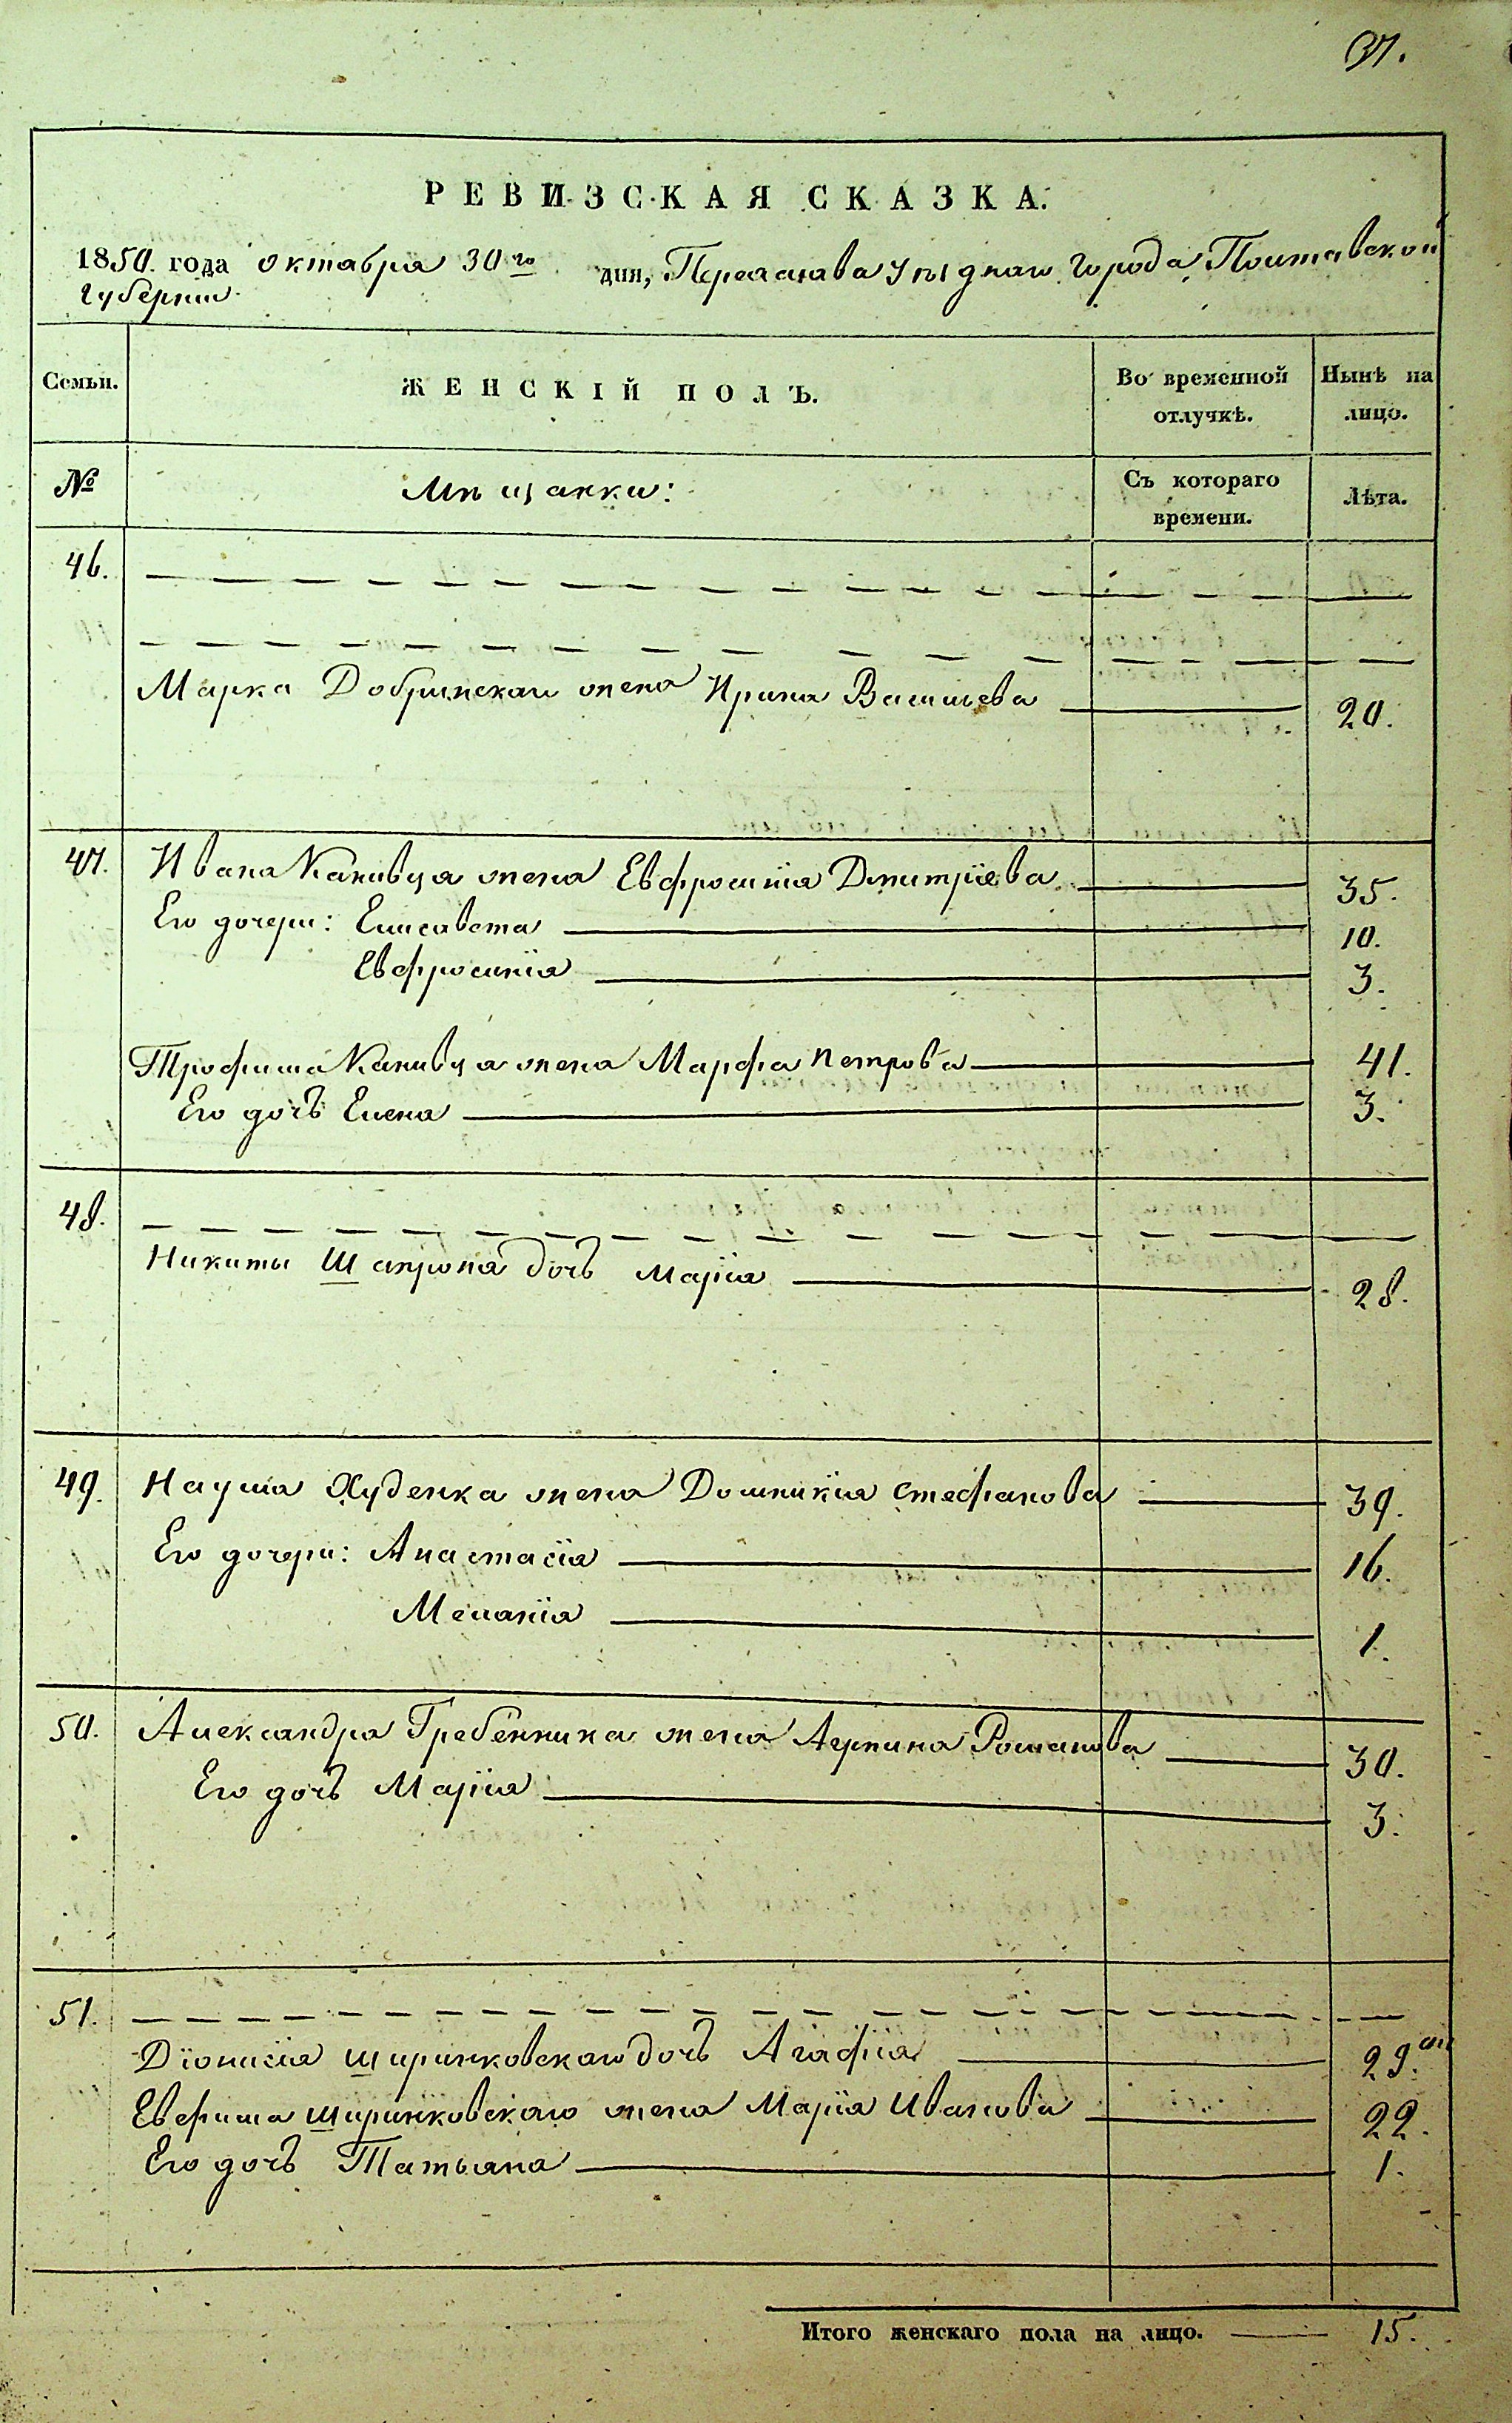 37.
РЕВИЗСКАЯ СКАЗКА.
1850. года октабра 30го дня, Переаслава уѣзднаго города, Полтавской
губерніи.
Семьи. ЖЕНСКІЙ ПОЛЪ. Во временной отлучкѣ. Нынѣ на лицо.
№ Мѣщанки: Съ котораго времени. Лѣта.
46.
Марка Добринскаго жена Ирина Васильева 20.
47. Ивана Канивца жена Евфросинія Дмитріева 35.
Его дочери: Елисавета 10.
Евфросинія 3.
Трофима Канивца жена Марфа Петрова 41.
Его дочь Елена 3.
48.
Никиты Шапрона дочь Марія 28.
49. Наума Худенка жена Домникія Стефанова 39.
Его дочери: Анастасія 16.
Меланія 1.
50. Александра Гребенника жена Агрипина Романова 30.
Его дочь Марія 3.
51.
Діонисія Ширинковскаго дочь Агафія 29.
Евфима Ширинковскаго жена Марія Иванова 22.
Его дочь Татьяна 1.
Итого женскаго пола на лицо. 15.